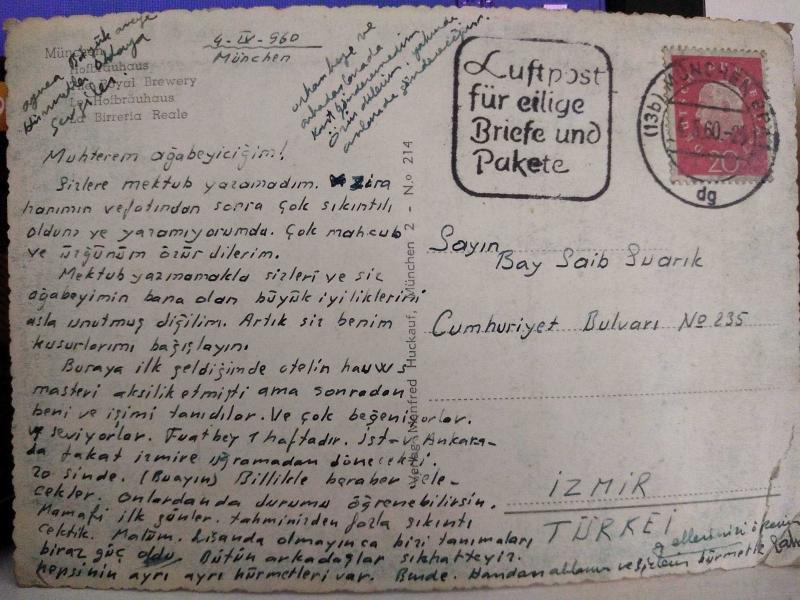 4-IV-960
München
Hofbräuhaus
Royal Brewery
Le Hofbräuhaus
La Birreria Reale
Muhterem ağabeyiciğim!
Sizlere mektub yazamadım. Zira
hanımın vefatından sonra çok sıkıntılı
oldum ve yazamıyorumda. Çok mahcub
ve üzgünüm özür dilerim.
Mektub yazmamakla sizleri ve siz
ağabeyimin bana olan büyük iyiliklerini
asla unutmuş diğilim. Artık siz benim
kusurlarımı bağışlayın.
Buraya ilk geldiğimde otelin hauws
masteri aksilik etmişti ama sonradan
beni ve işimi tanıdılar. Ve çok beğeniyorlar.
ve seviyorlar. Fuatbey 1 haftadır. İst-v. Ankara-
da fakat izmire uğramadan dönecekti.
20 sinde. (Buayın) Billikle beraber gele-
cekler. Onlardanda durumu öğrenebilirsin.
Mamafi ilk günler. tahminizden fazla sıkıntı
çektik. Malüm. Lisanda olmayınca bizi tanımaları
biraz güç oldu. Bütün arkadaşlar sıhhatteyiz.
hepsinin ayrı ayrı hürmetleri var. Bende. Handan ablamın ve sizlerin hürmetle
ellerinizi
Verlag Manfred Huckauf, München 2 - N.o 214
Luftpost
für eilige
Briefe und
Pakete
(13b) MÜNCHEN
60.-2
dg
20
Sayın
Bay Saib Suarık
Cumhuriyet Bulvarı No 235
İZMİR
TÜRKEİ
orhan beye ve
arkadaşlarada
kart gönderemedim
özür dilerim. yakında
onlarada göndereceğim.